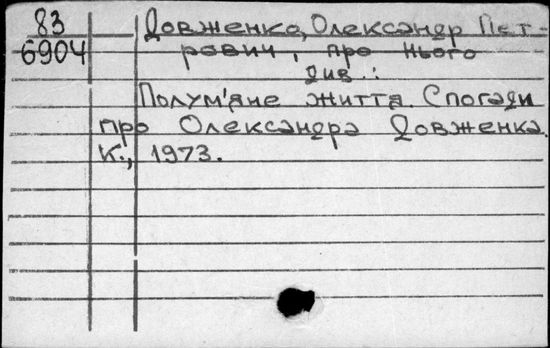 83
6904
Довженко, Олександр Пет-
рович, про нього
див.:
Полум'яне життя. Спогади
про Олександра Довженка.
К., 1973.